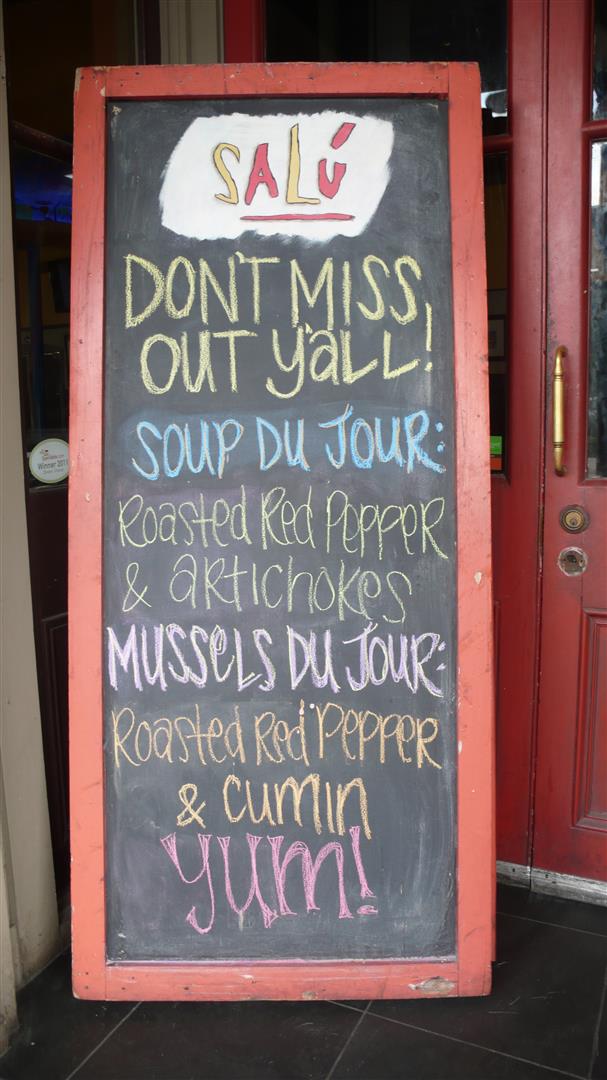 SALÚ
DON'T MISS
OUT Y'ALL!
SOUP DU JOUR:
Roasted Red Pepper
& ARTICHOKES
MUSSELS DU JOUR:
Roasted Red Pepper
& CUMIN
YUM!
Winner 2011